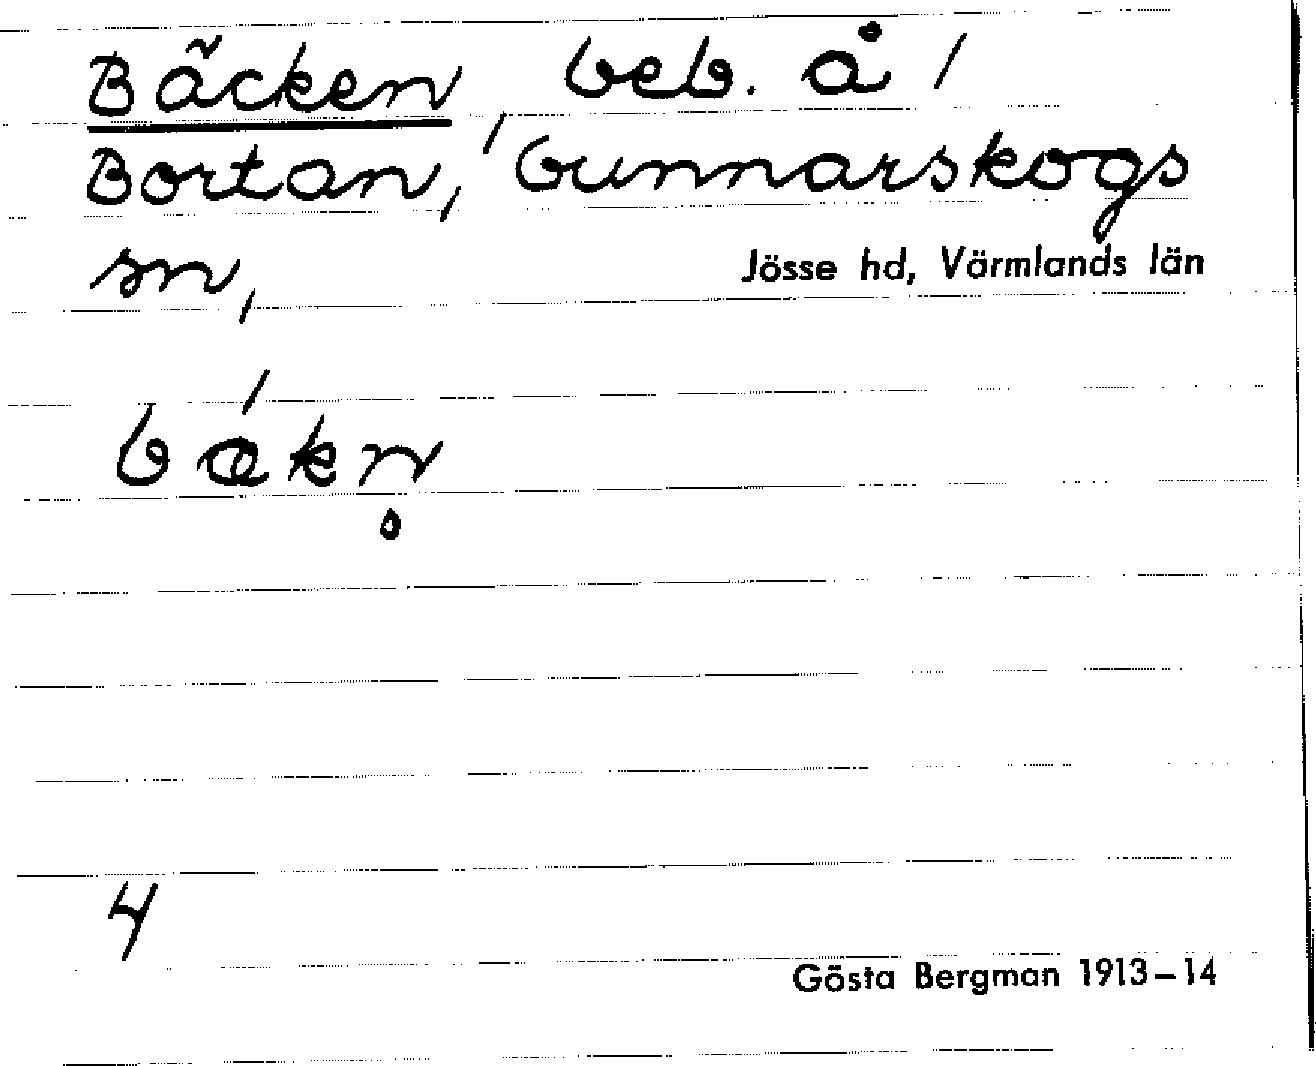 Bäcken beb. å /
Bortan, Gunnarskogs
sn,
Jösse hd, Värmlands län
4
Gösta Bergman 1913–14